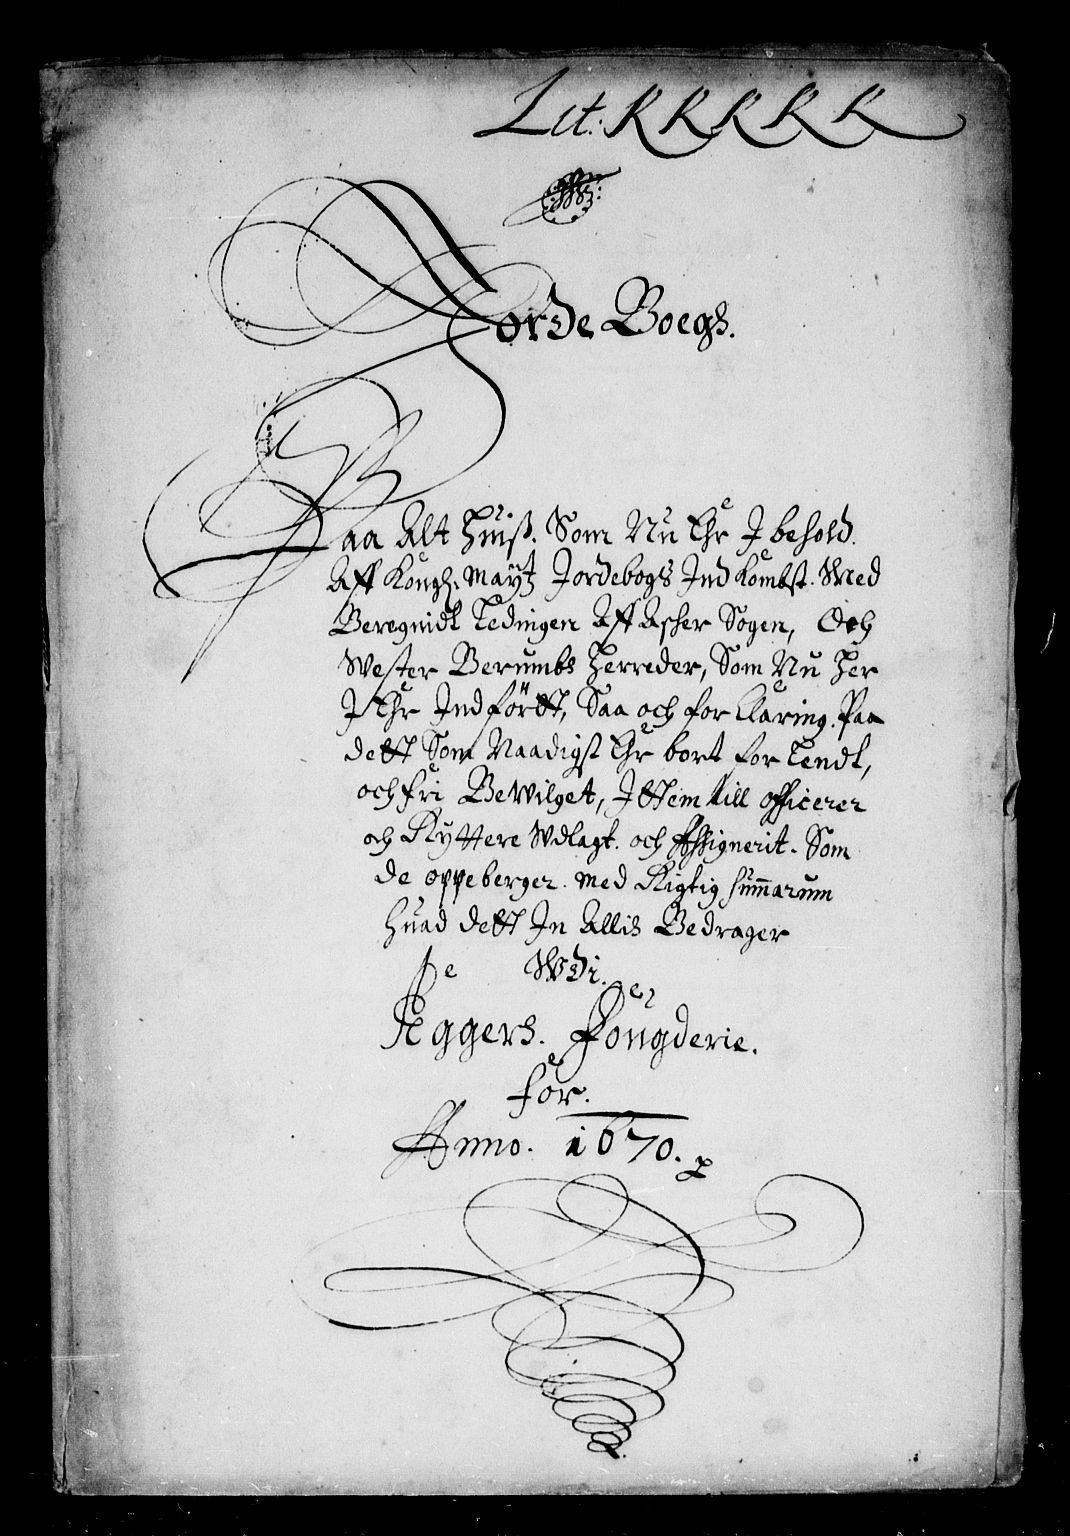 Lit: K K K K K
Jorde Boegh.
Paa Alt huiß. Som Nu Ehr J behold.
Aff Kongl. Maÿtz Jordebogs Ind Kombst. Med
Beregnidt Ledingen Aff Asker Sogen, Och
Wester Berumbs Herreder, Som Nu Her
J Ehr Ind förtt, Saa och for Claring. Paa
dett Som Naadigst Ehr bort for Lendt,
och fri Bewilget, Jttem till officerer
och Ryttere Wdlagt. och Assignerit. Som
de oppeberger. med Rigtig summarum
huad dett In Allis Bedrager
Wdi.
Aggers. Fougderie.
for.
Anno. 1670.